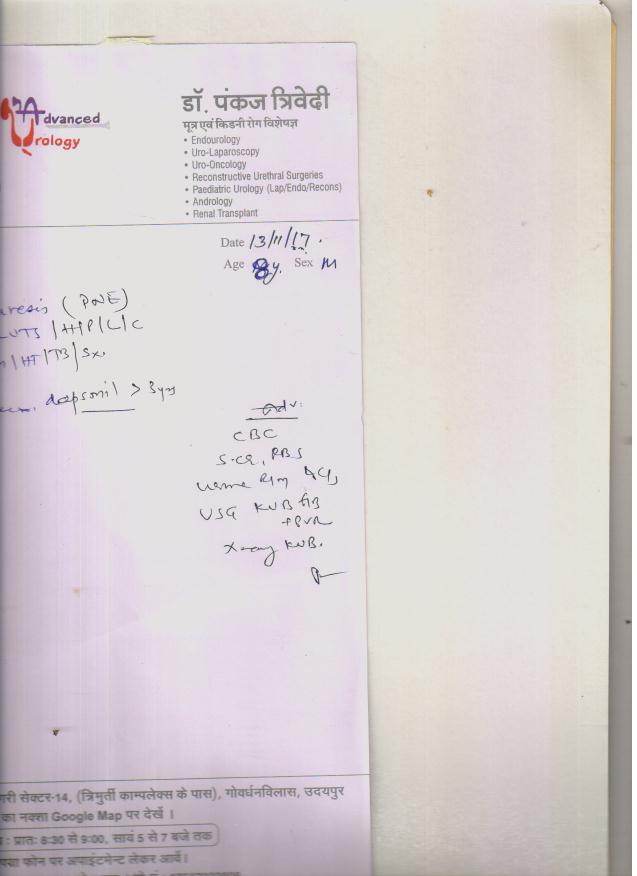 Advanced
Urology
डॉ. पंकज त्रिवेदी
मूत्र एवं किडनी रोग विशेषज्ञ
• Endourology
• Uro-Laparoscopy
• Uro-Oncology
• Reconstructive Urethral Surgeries
• Paediatric Urology (Lap/Endo/Recons)
• Andrology
• Renal Transplant
Date 13/11/17.
Age 8y. Sex M
uresis (PNE)
LUTS /H/P/L/C
/HT/TB/Sx.
> 3yrs
Adv:
CBC
S.CR, RBS
Urine R/m
USG KUB
+PVR
X-ray KUB.
गरी सेक्टर-14, (त्रिमुर्ती काम्पलेक्स के पास), गोवर्धनविलास, उदयपुर
का नक्शा Google Map पर देखें ।
: प्रातः 8:30 से 9:00, सायं 5 से 7 बजे तक
पया फोन पर अपाइंटमेन्ट लेकर आवें।